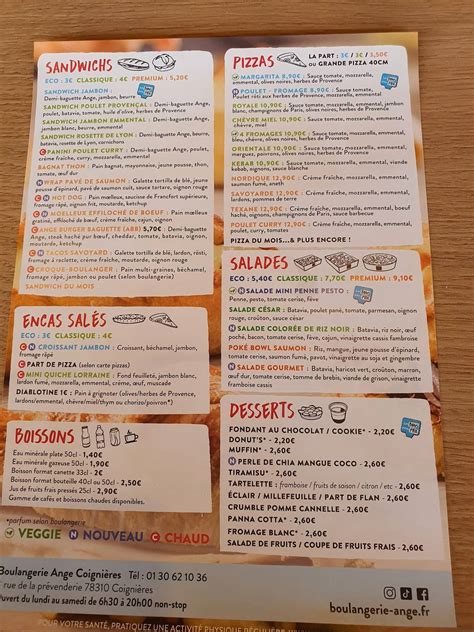 SANDWICHS
ECO : 3€ CLASSIQUE : 4€ PREMIUM : 5,20€
SANDWICH JAMBON : Demi-baguette Ange, jambon, beurre
SANDWICH POULET PROVENÇAL : Demi-baguette Ange,
poulet, batavia, tomate, huile d'olive, herbes de Provence
SANDWICH JAMBON EMMENTAL : Demi-baguette Ange,
jambon blanc, emmental, beurre
SANDWICH ROSETTE DE LYON : Demi-baguette Ange,
rosette, beurre, cornichons
PANINI POULET CURRY : Demi-baguette Ange, poulet
curry, crème fraîche, mozzarella, emmental
BAGNAT THON : Pain bagnat, mayonnaise, jaune pousse, thon,
tomate, œuf dur
WRAP PAVÉ DE SAUMON : Galette tortilla de blé, jeune
HOT DOG : Pain
MOELLEUX EFFILOCHÉ DE BOEUF : Pain moelleux
ANGE BURGER BAGUETTE (ABB) 5,70€ : Demi-baguette
Ange, steak haché pur bœuf, cheddar, tomate, batavia, oignon,
moutarde, ketchup
TACOS SAVOYARD : Galette tortilla de blé, lardon, rösti,
fromage à raclette, crème fraîche, moutarde, oignon rouge
CROQUE-BOULANGER : Pain multi-graines, béchamel,
fromage râpé, jambon ou poulet (selon boulangerie)
SANDWICH DU MOIS
ENCAS SALÉS
ECO : 3€ CLASSIQUE : 4€
CROISSANT JAMBON : Croissant, béchamel, jambon,
fromage râpé
PART DE PIZZA (selon carte pizzas)
MINI QUICHE LORRAINE : Fond feuilleté, jambon blanc,
lardon fumé, mozzarella, emmental, crème, œuf, muscade
DIABLOTINE 1€ : Pain à grignoter (olives/herbes de Provence,
lardons/emmental, chèvre/miel/thym ou chorizo/poivron*)
BOISSONS
Eau minérale plate 50cl - 1,40€
Eau minérale gazeuse 50cl - 1,90€
Boisson format canette 33cl - 2€
Boisson format bouteille 40cl ou 50cl - 2,50€
Jus de fruits frais pressés 25cl - 2,90€
Gamme de cafés et boissons chaudes disponibles.
*parfum selon boulangerie
VEGGIE NOUVEAU CHAUD
Boulangerie Ange Coignières Tél : 01 30 62 10 36
rue de la prévenderie 78310 Coignières
Ouvert du lundi au samedi de 6h30 à 20h00 non-stop
PIZZAS
LA PART : 3€ / 3€ / 3,50€
ou GRANDE PIZZA 40CM
MARGARITA 8,90€ : Sauce tomate, mozzarella,
emmental, olives noires, herbes de Provence
POULET - FROMAGE 8,90€ : Sauce tomate,
Poulet rôti aux herbes, mozzarella, emmental
ROYALE 10,90€ : Sauce tomate, mozzarella, emmental, jambon
blanc, champignons de Paris, olives noires, herbes de Provence
CHÈVRE MIEL 10,90€ : Sauce tomate, mozzarella, emmental,
chèvre/miel
4 FROMAGES 10,90€ : Sauce tomate, mozzarella,
ORIENTALE 10,90€ : Sauce tomate, mozzarella, emmental,
merguez, poivrons, olives noires, herbes de Provence
KEBAB 10,90€ : Sauce tomate, mozzarella, emmental, viande
kebab, oignons, sauce blanche
NORDIQUE 12,90€ : Crème fraîche, mozzarella, emmental,
saumon fumé, aneth
SAVOYARDE 12,90€ : Crème fraîche, mozzarella, emmental,
lardons, pommes de terre
TEXANE 12,90€ : Crème fraîche, mozzarella, emmental, bœuf
haché, oignons, champignons de Paris, sauce barbecue
POULET CURRY 12,90€ : Crème fraîche, mozzarella, emmental,
poulet, curry, tomates
PIZZA DU MOIS...& PLUS ENCORE !
SALADES
ECO : 5,40€ CLASSIQUE : 7,70€ PREMIUM : 9,10€
SALADE MINI PENNE PESTO :
Penne, pesto, tomate cerise, fève
SALADE CÉSAR : Batavia, poulet pané, tomate, parmesan, oignon
rouge, croûton, sauce césar
SALADE COLORÉE DE RIZ NOIR :
POKÉ BOWL SAUMON : Riz, mangue, jeune pousse d'épinard,
SALADE GOURMET :
DESSERTS
FONDANT AU CHOCOLAT / COOKIE* - 2,20€
DONUT'S* - 2,20€
MUFFIN* - 2,60€
PERLE DE CHIA MANGUE COCO - 2,60€
TIRAMISU* - 2,60€
TARTELETTE : framboise / fruits de saison / citron / etc - 2,60€
ÉCLAIR / MILLEFEUILLE / PART DE FLAN - 2,60€
CRUMBLE POMME CANNELLE - 2,60€
PANNA COTTA* - 2,60€
FROMAGE BLANC* - 2,60€
SALADE DE FRUITS / COUPE DE FRUITS FRAIS - 2,60€
boulangerie-ange.fr
POUR VOTRE SANTÉ, PRATIQUEZ UNE ACTIVITÉ PHYSIQUE RÉGULIÈRE